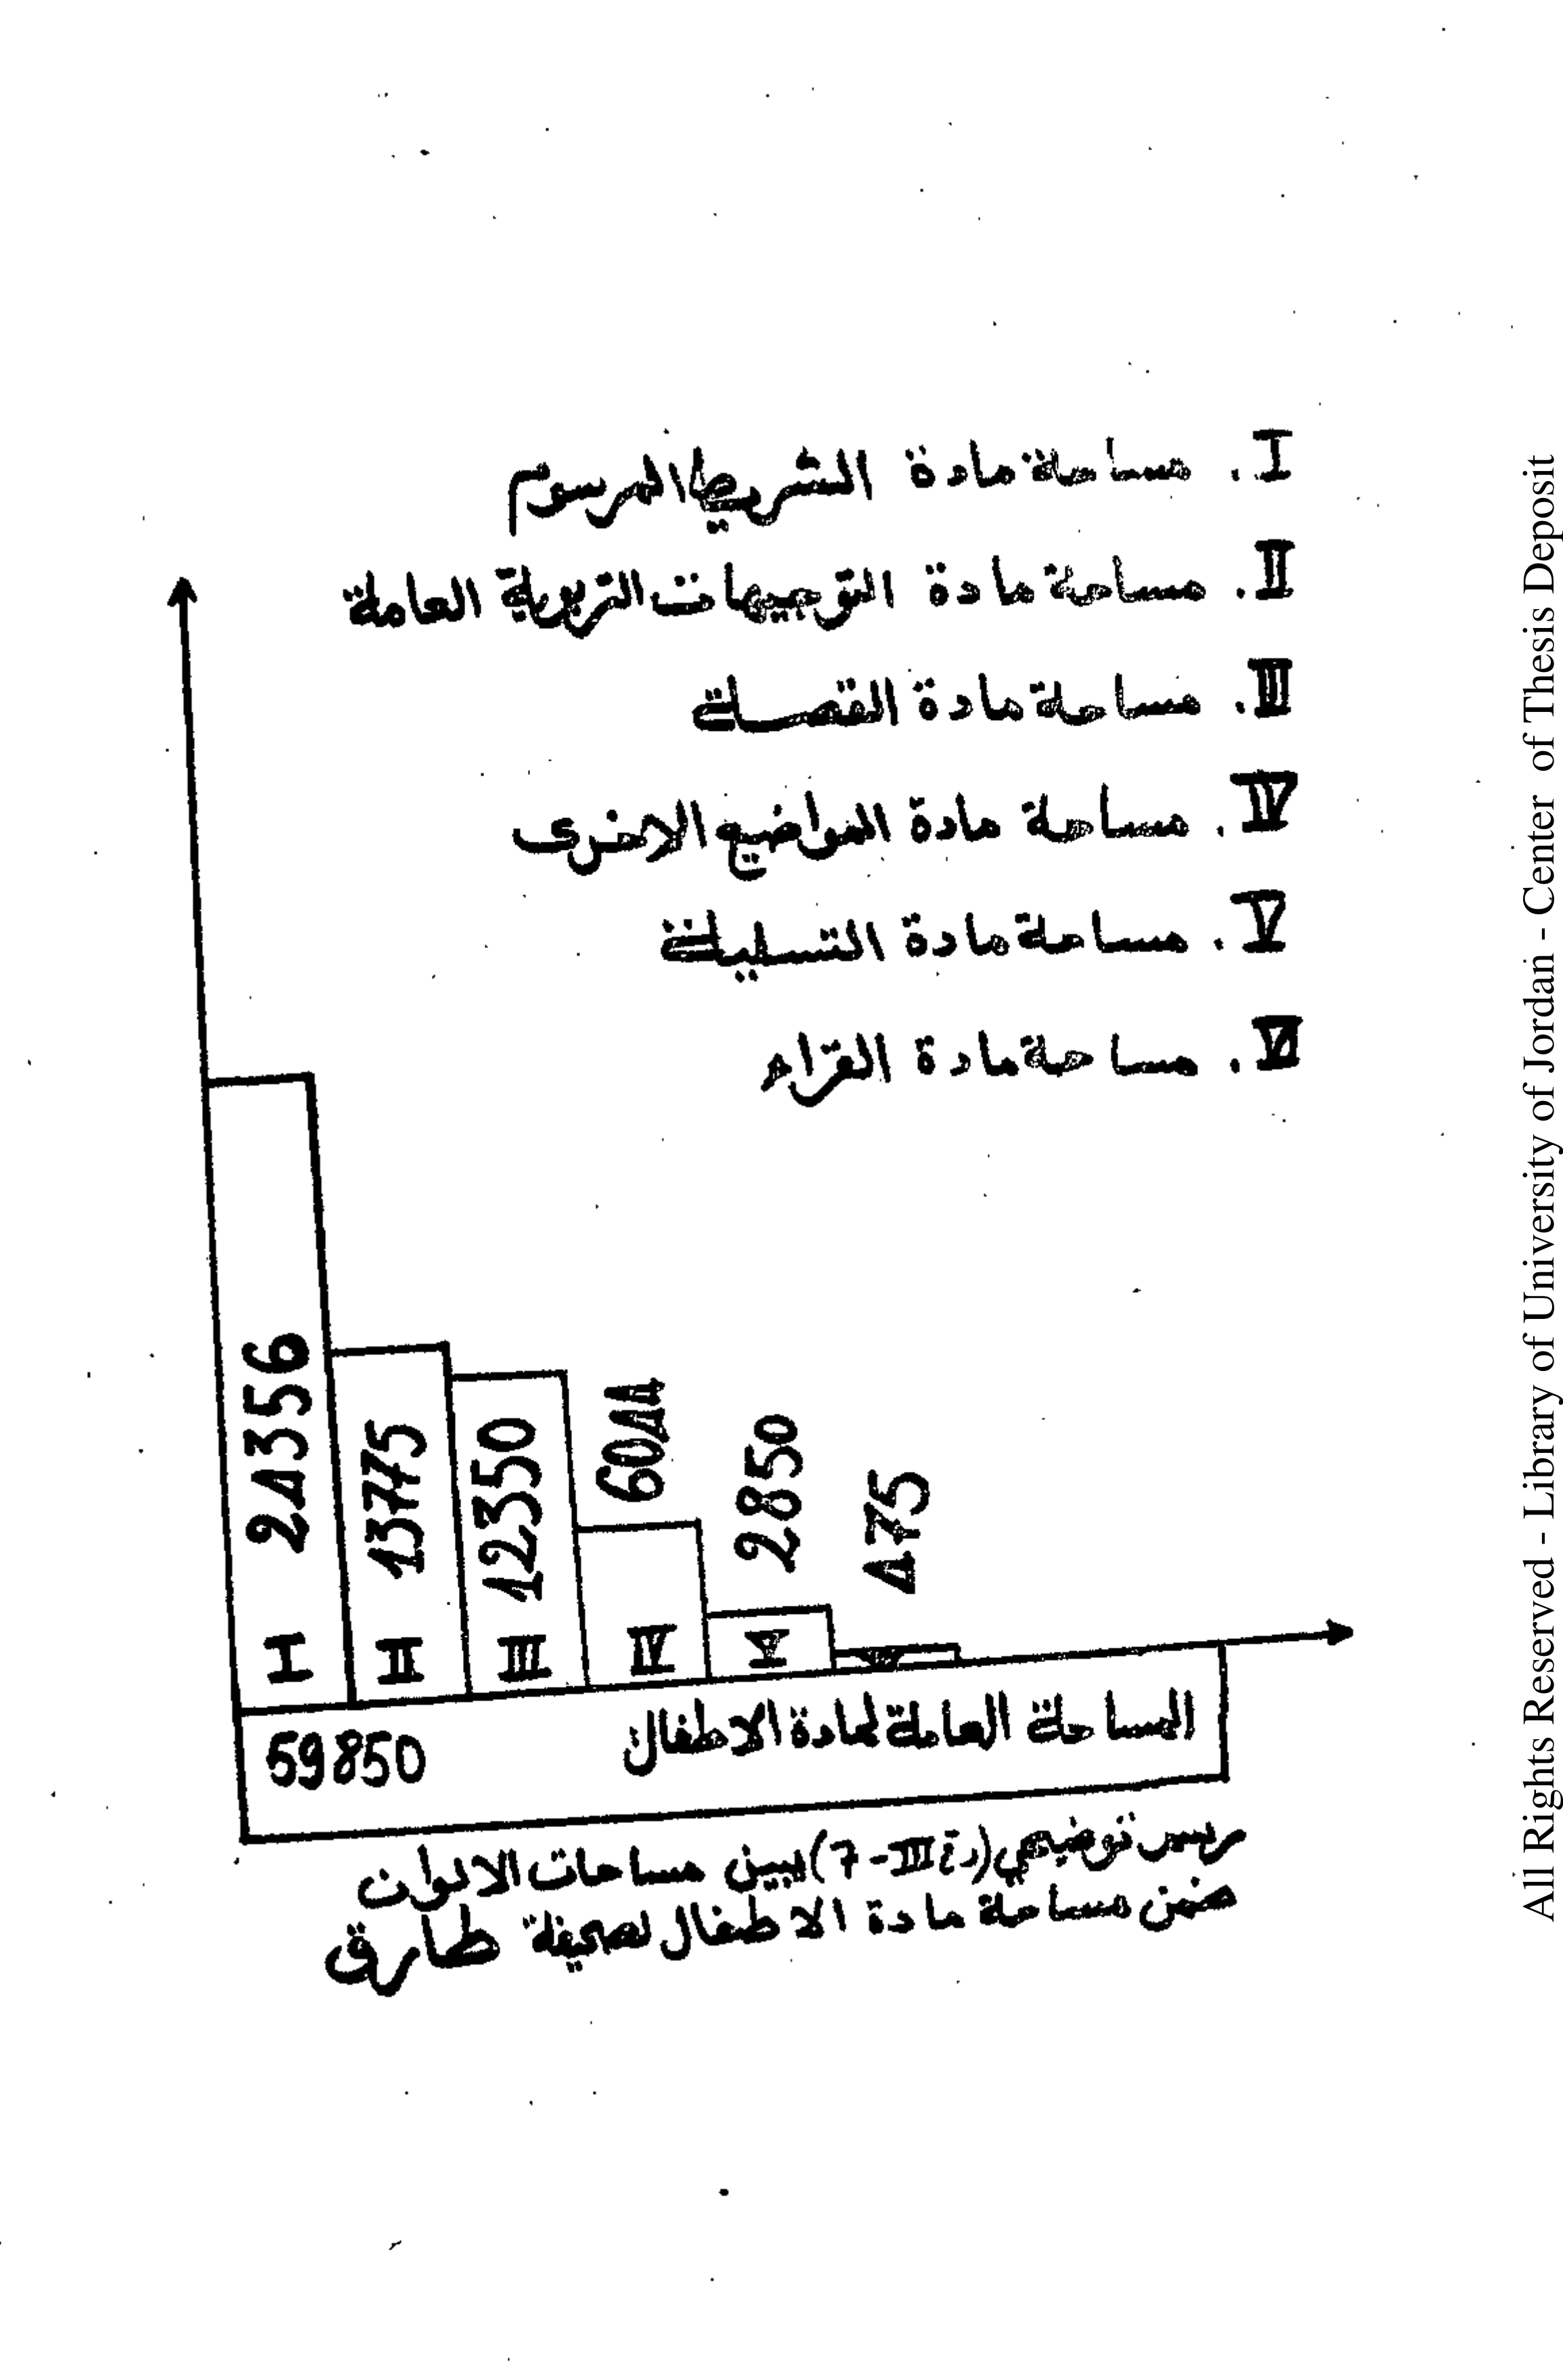 I. مساحة مادة الشريط المرسوم
II. مساحة مادة التوجيهات التربوية العامة
III. مساحة مادة القصة
IV. مساحة مادة المواضيع الاخرى
V. مساحة مادة التسلية
VI. مساحة مادة القراء
I 24356
II 13775
III 12350
IV 6044
V 2850
VI 475
المساحة العامة لمادة الاطفال 59850
رسم توضيحي (III-7) يبين مساحات الالوان
ضمن مساحة مادة الاطفال لصحيفة طارق
All Rights Reserved - Library of University of Jordan - Center of Thesis Deposit